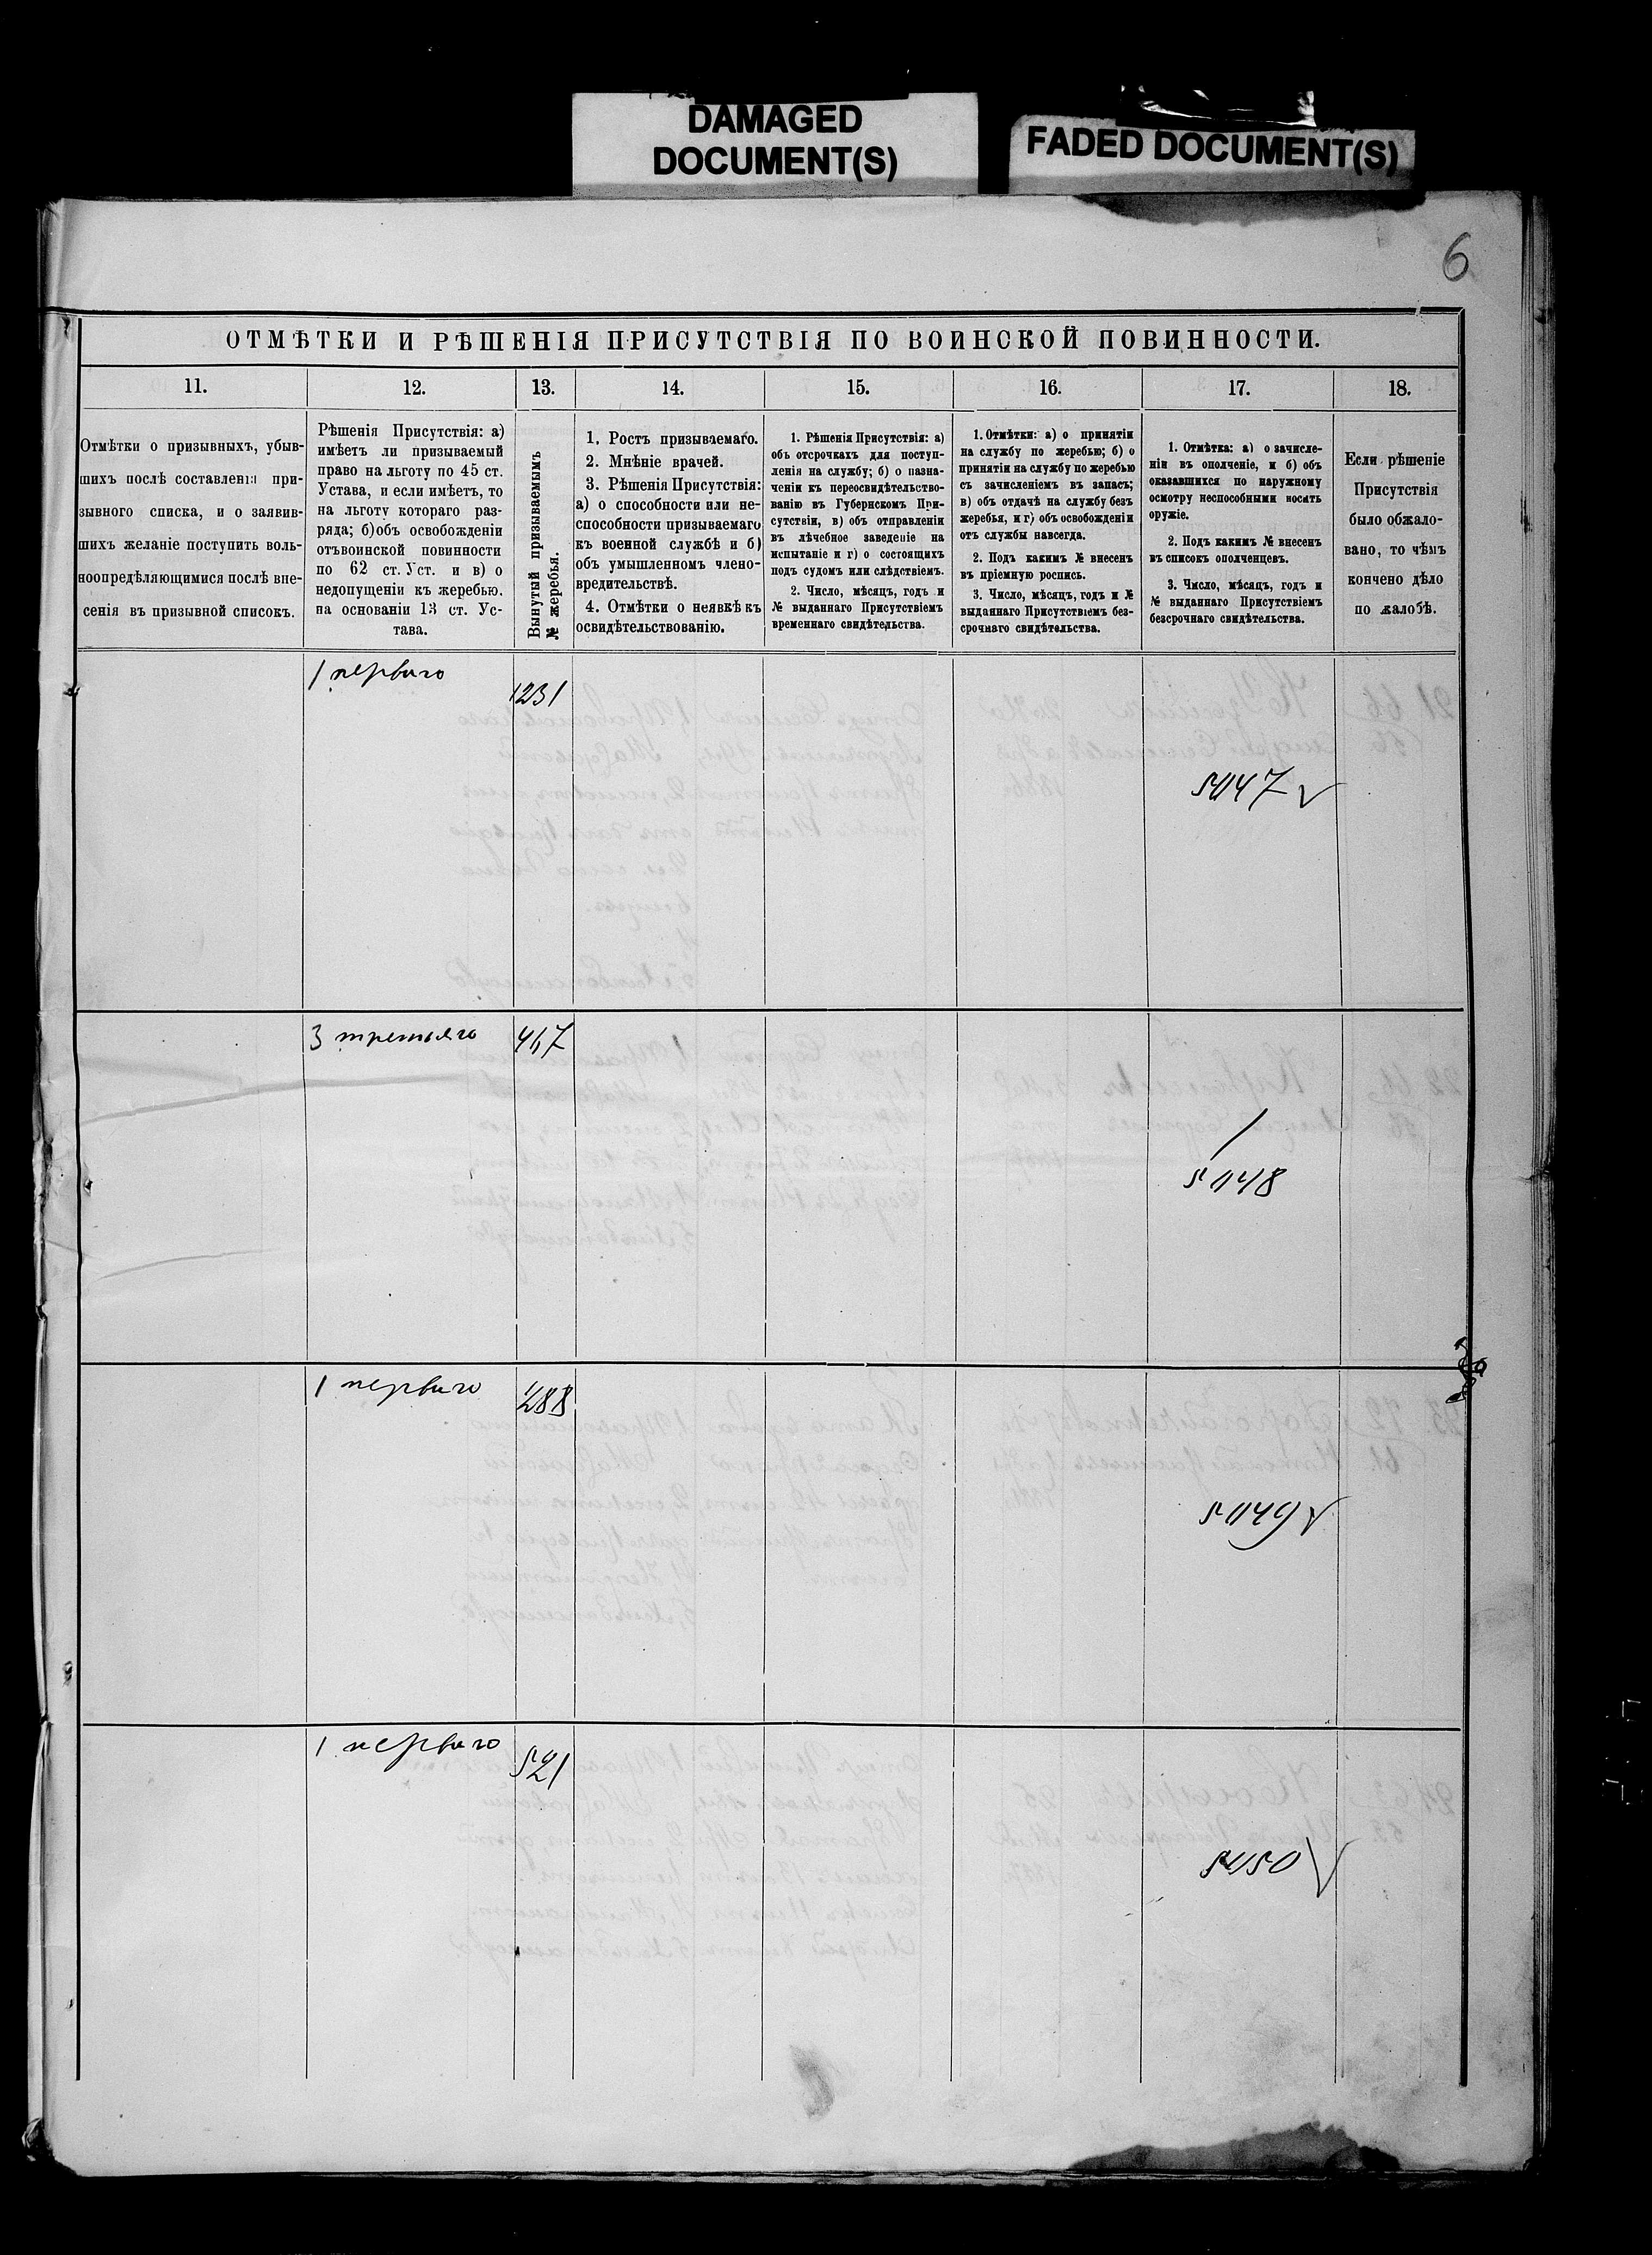 DAMAGED
DOCUMENT(S)
FADED DOCUMENT(S)
6
ОТМѢТКИ И РѢШЕНІЯ ПРИСУТСТВІЯ ПО ВОИНСКОЙ ПОВИННОСТИ.
11.
12.
13.
14.
15.
16.
17.
18.
Отмѣтки о призывныхъ, убыв-
шихъ послѣ составленія при-
зывного списка, и о заявив-
шихъ желаніе поступить воль-
ноопредѣляющимися послѣ вне-
сенія въ призывной списокъ.
Рѣшенія Присутствія: а)
имѣетъ ли призываемый
право на льготу по 45 ст.
Устава, и если имѣетъ, то
на льготу котораго раз-
ряда; б) объ освобожденіи
отъ воинской повинности
по 62 ст. Уст. и в) о
недопущеніи къ жеребью.
на основаніи 13 ст. Ус-
тава.
Вынутый призываемымъ
№ жеребья.
1. Ростъ призываемаго.
2. Мнѣніе врачей.
3. Рѣшенія Присутствія:
а) о способности или не-
способности призываемаго
къ военной службѣ и б)
объ умышленномъ члено-
вредительствѣ.
4. Отмѣтки о неявкѣ къ
освидѣтельствованію.
1. Рѣшенія Присутствія: а)
объ отсрочкахъ для поступ-
ленія на службу; б) о назна-
ченіи къ переосвидѣтельство-
ванію въ Губернскомъ При-
сутствіи, в) объ отправленіи
въ лѣчебное заведеніе на
испытаніе и г) о состоящихъ
подъ судомъ или слѣдствіемъ.
2. Число, мѣсяцъ, годъ и
№ выданнаго Присутствіемъ
временнаго свидѣтельства.
1. Отмѣтки: а) о принятіи
на службу по жеребью; б) о
принятіи на службу по жеребью
съ зачисленіемъ въ запасъ;
в) объ отдачѣ на службу безъ
жеребья, и г) объ освобожденіи
отъ службы навсегда.
2. Подъ какимъ № внесенъ
въ пріемную роспись.
3. Число, мѣсяцъ, годъ и №
выданнаго Присутствіемъ без-
срочнаго свидѣтельства.
1. Отмѣтка: а) о зачисле-
ніи въ ополченіе, и б) объ
оказавшихся по наружному
осмотру неспособными носить
оружіе.
2. Подъ какимъ № внесенъ
въ списокъ ополченцевъ.
3. Число, мѣсяцъ, годъ и
№ выданнаго Присутствіемъ
безсрочнаго свидѣтельства.
Если рѣшеніе
Присутствія
было обжало-
вано, то чѣмъ
кончено дѣло
по жалобѣ.
1 перваго
1231
3 третьяго
467
1 перваго
288
1 перваго
521